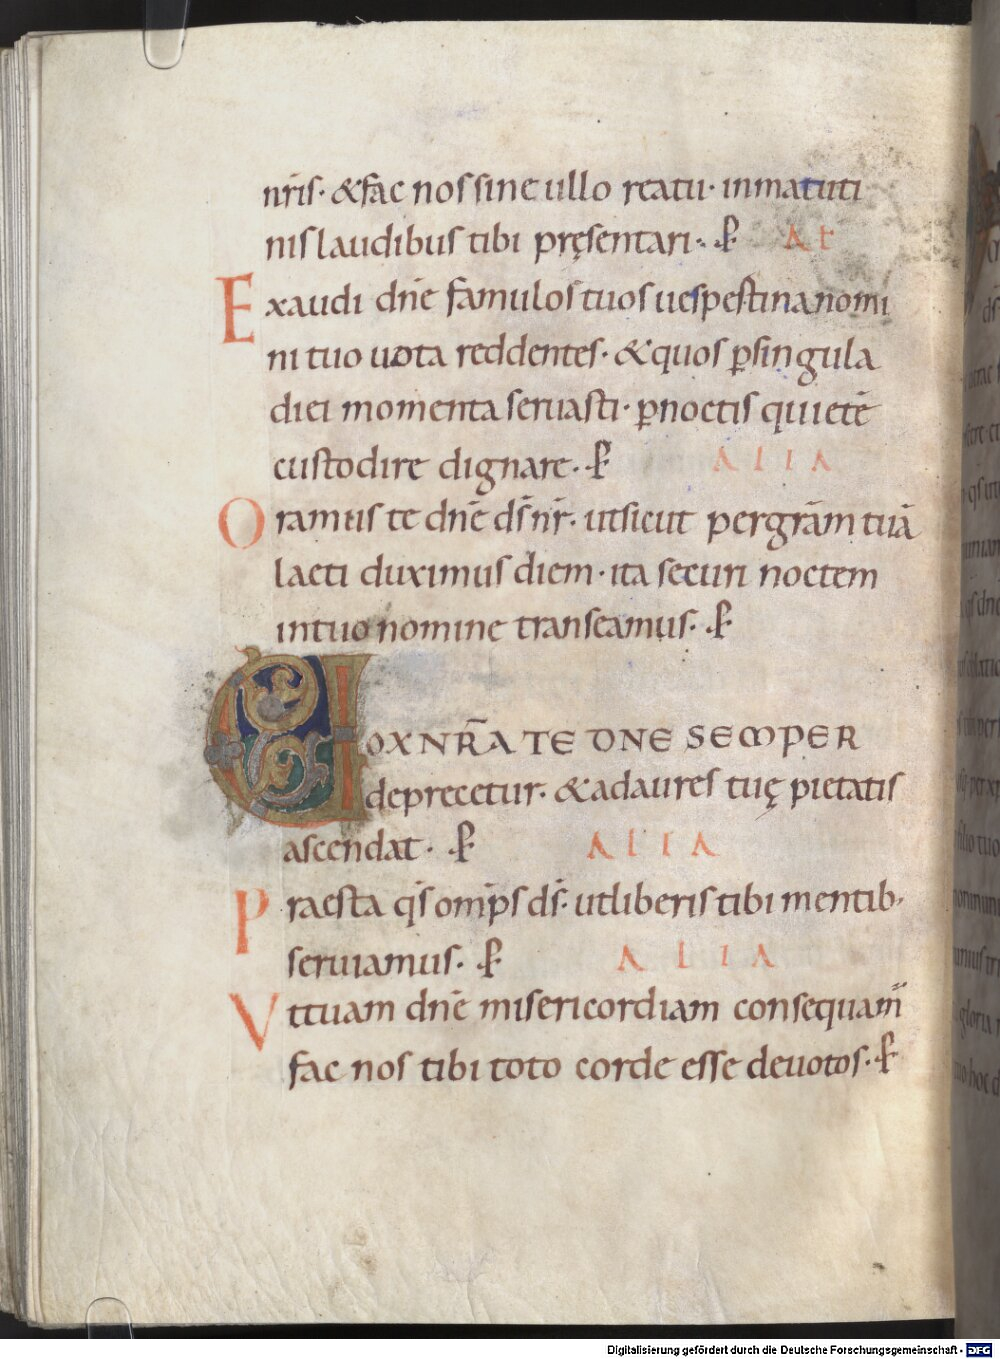 nr̄is· &fac nos sine ullo reatu· inmatuti
nis laudibus tibi pręsentari·. P̵ AŁ
Exaudi dn̄e famulos tuos uespestina nomi
ni tuo uota reddentes· &quos ꝑsingula
diei momenta seruasti· ꝑnoctis quietē
custodire dignare·. P̵ ALIA
Oramus te dn̄e ds̄ nr̄· utsicut pergrām tuā
laeti duximus diem· ita securi noctem
intuo nomine transeamus·. P̵
VOX NR̄A TE DNE SEMPER
deprecetur· &adaures tuę pietatis
ascendat· P̵ ALIA
Praesta qs̄ omp̄s ds̄· utliberis tibi mentib·
seruiamus· P̵ ALIA
Vttuam dn̄e misericordiam consequam̄
fac nos tibi toto corde esse deuotos·. P̵
Digitalisierung gefördert durch die Deutsche Forschungsgemeinschaft - DFG